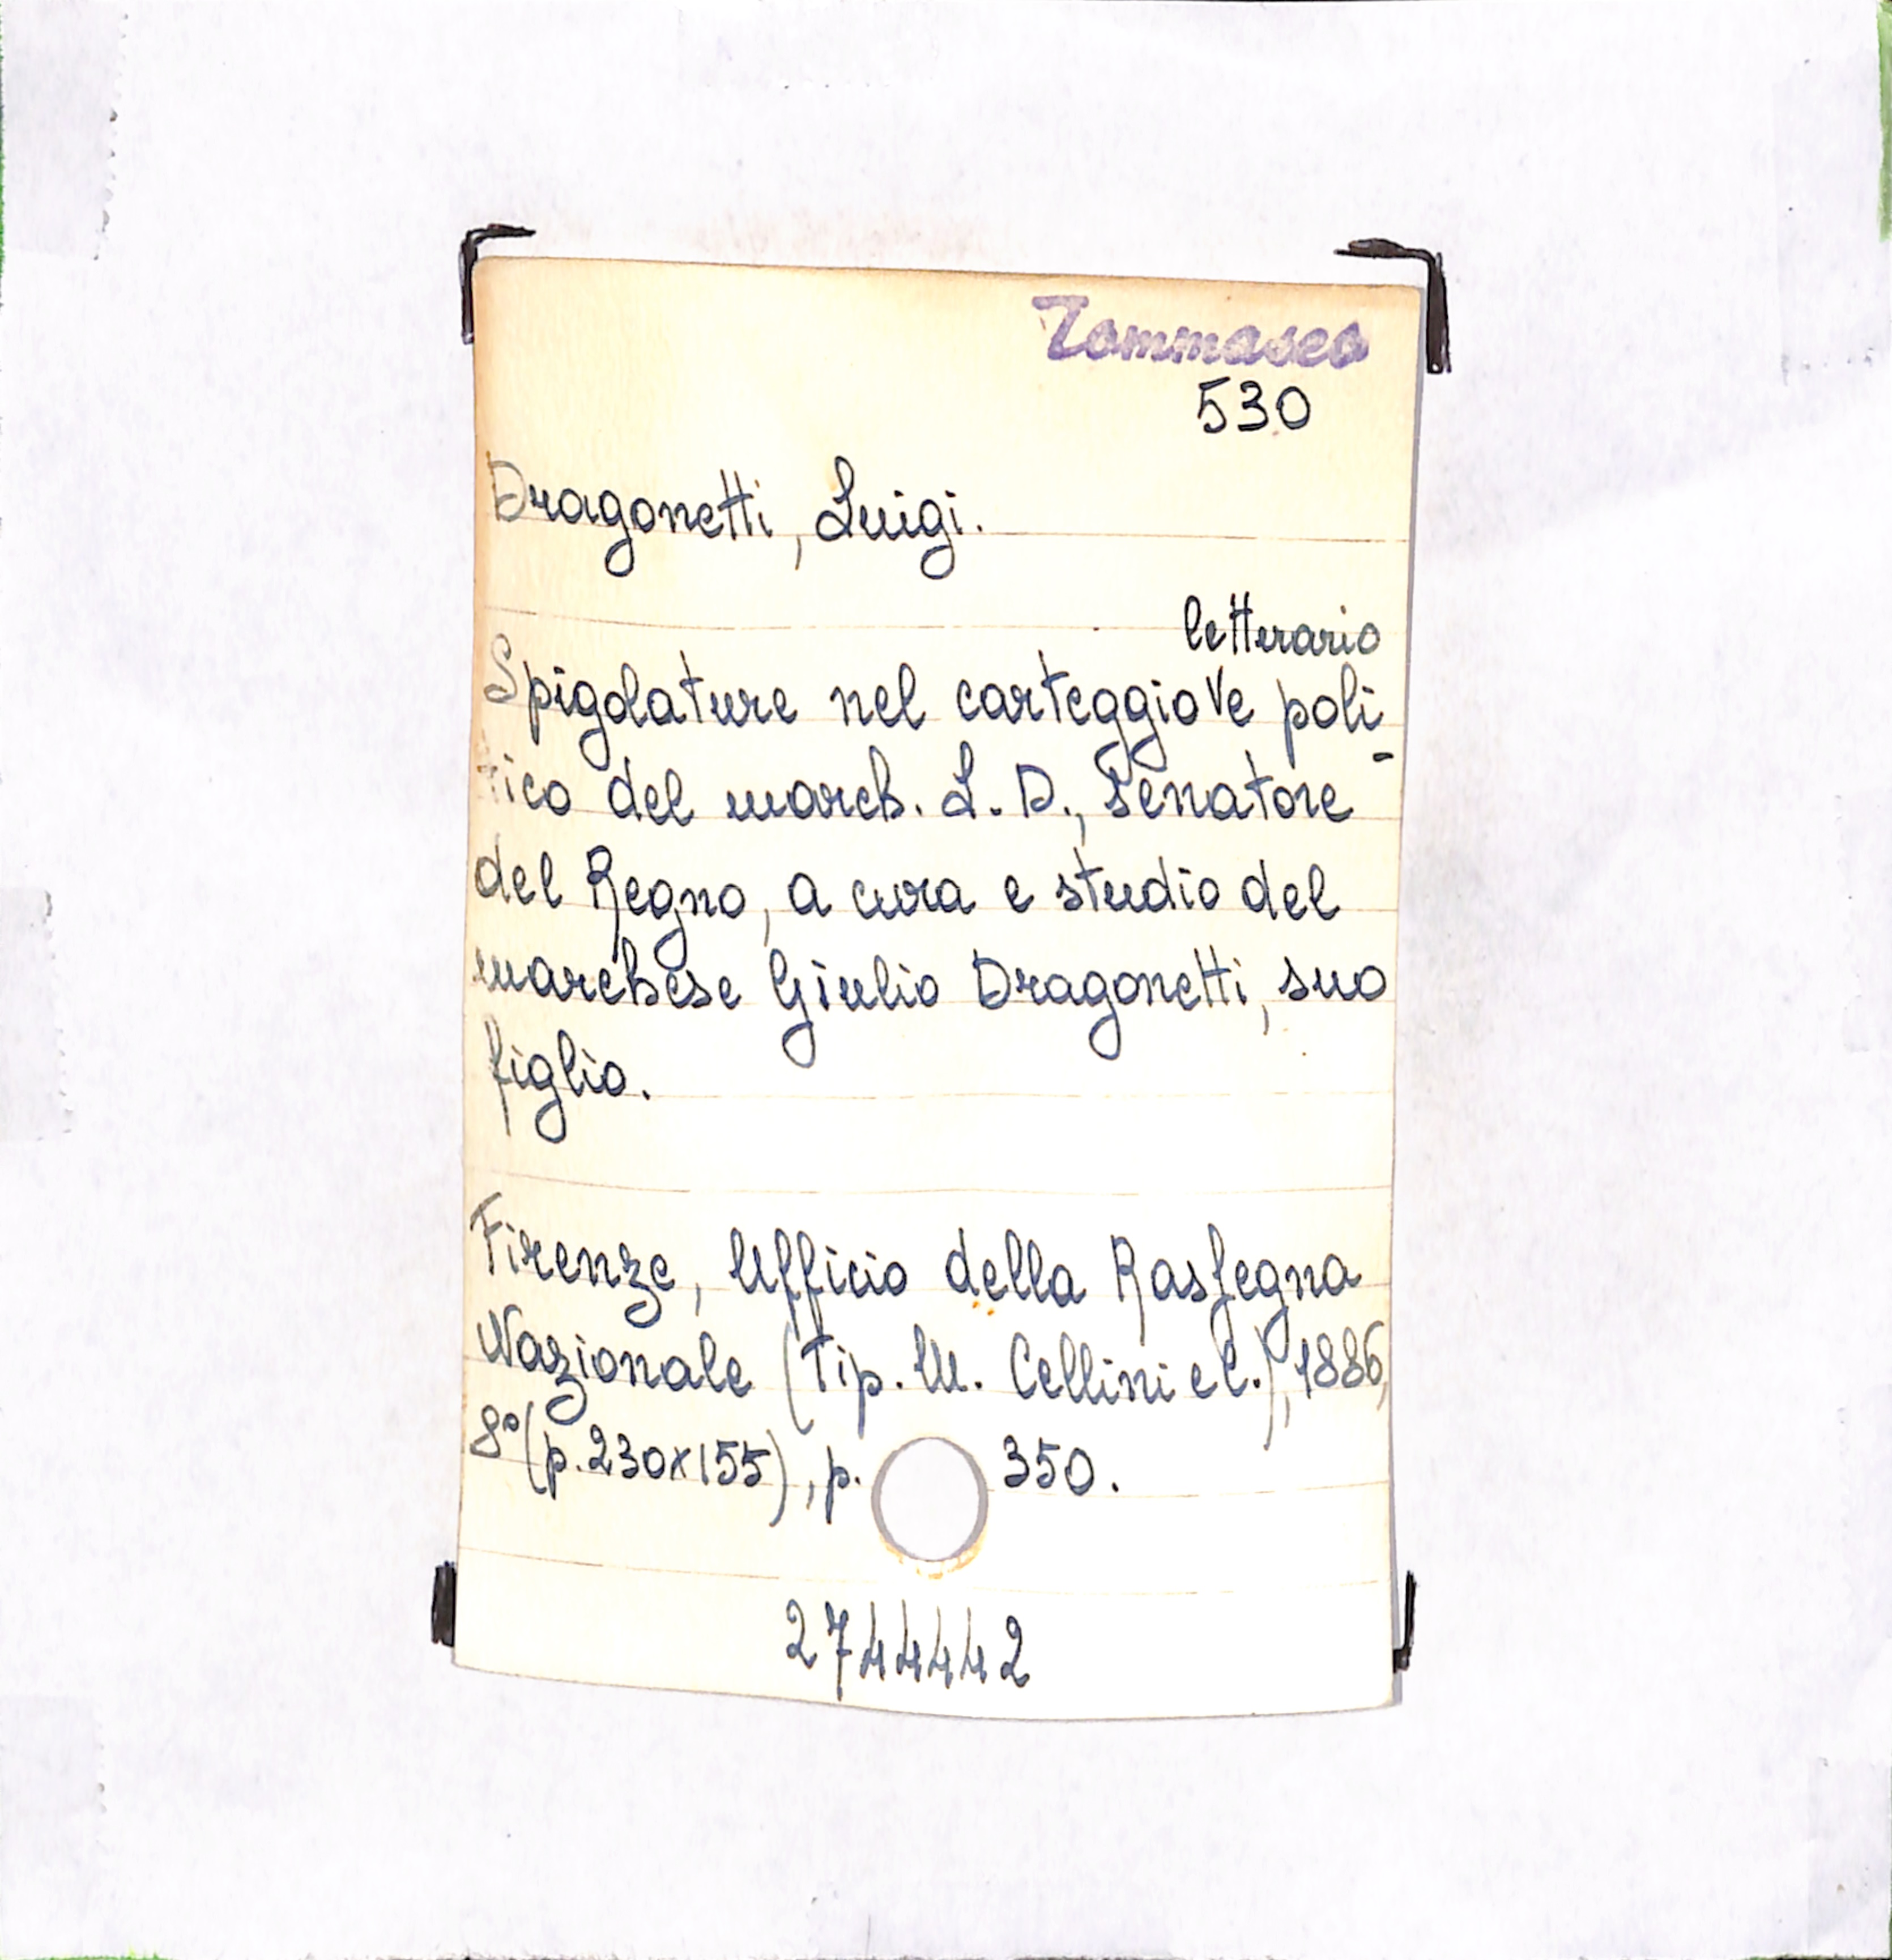 Tommaseo
530
Dragonetti, Luigi.
letterario
Spigolature nel carteggio e poli-
tico del march. L. D., Senatore
del Regno, a cura e studio del
marchese Giulio Dragonetti, suo
figlio.
Firenze, Ufficio della Rassegna
Nazionale (Tip. M. Cellini e C.), 1886,
8° (p. 230x155), p. 350.
2744442